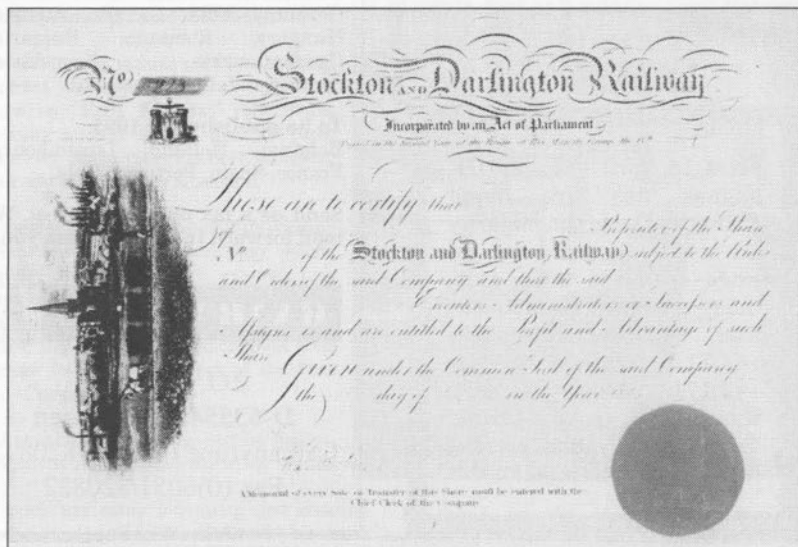 No.
Stockton AND Darlington Railway
Incorporated by an Act of Parliament
Passed in the Second Year of the Reign of His Majesty George the IVth
These are to certify that
of Proprietor of the Share
No of the Stockton and Darlington Railway subject to the Rules
and Orders of the said Company and that the said
Executors Administrators or Successors and
Assigns is and are entitled to the Profit and Advantage of such
Share Given under the Common Seal of the said Company
the day of in the Year
A Memorial of every Sale or Transfer of this Share must be entered with the
Chief Clerk of the Company